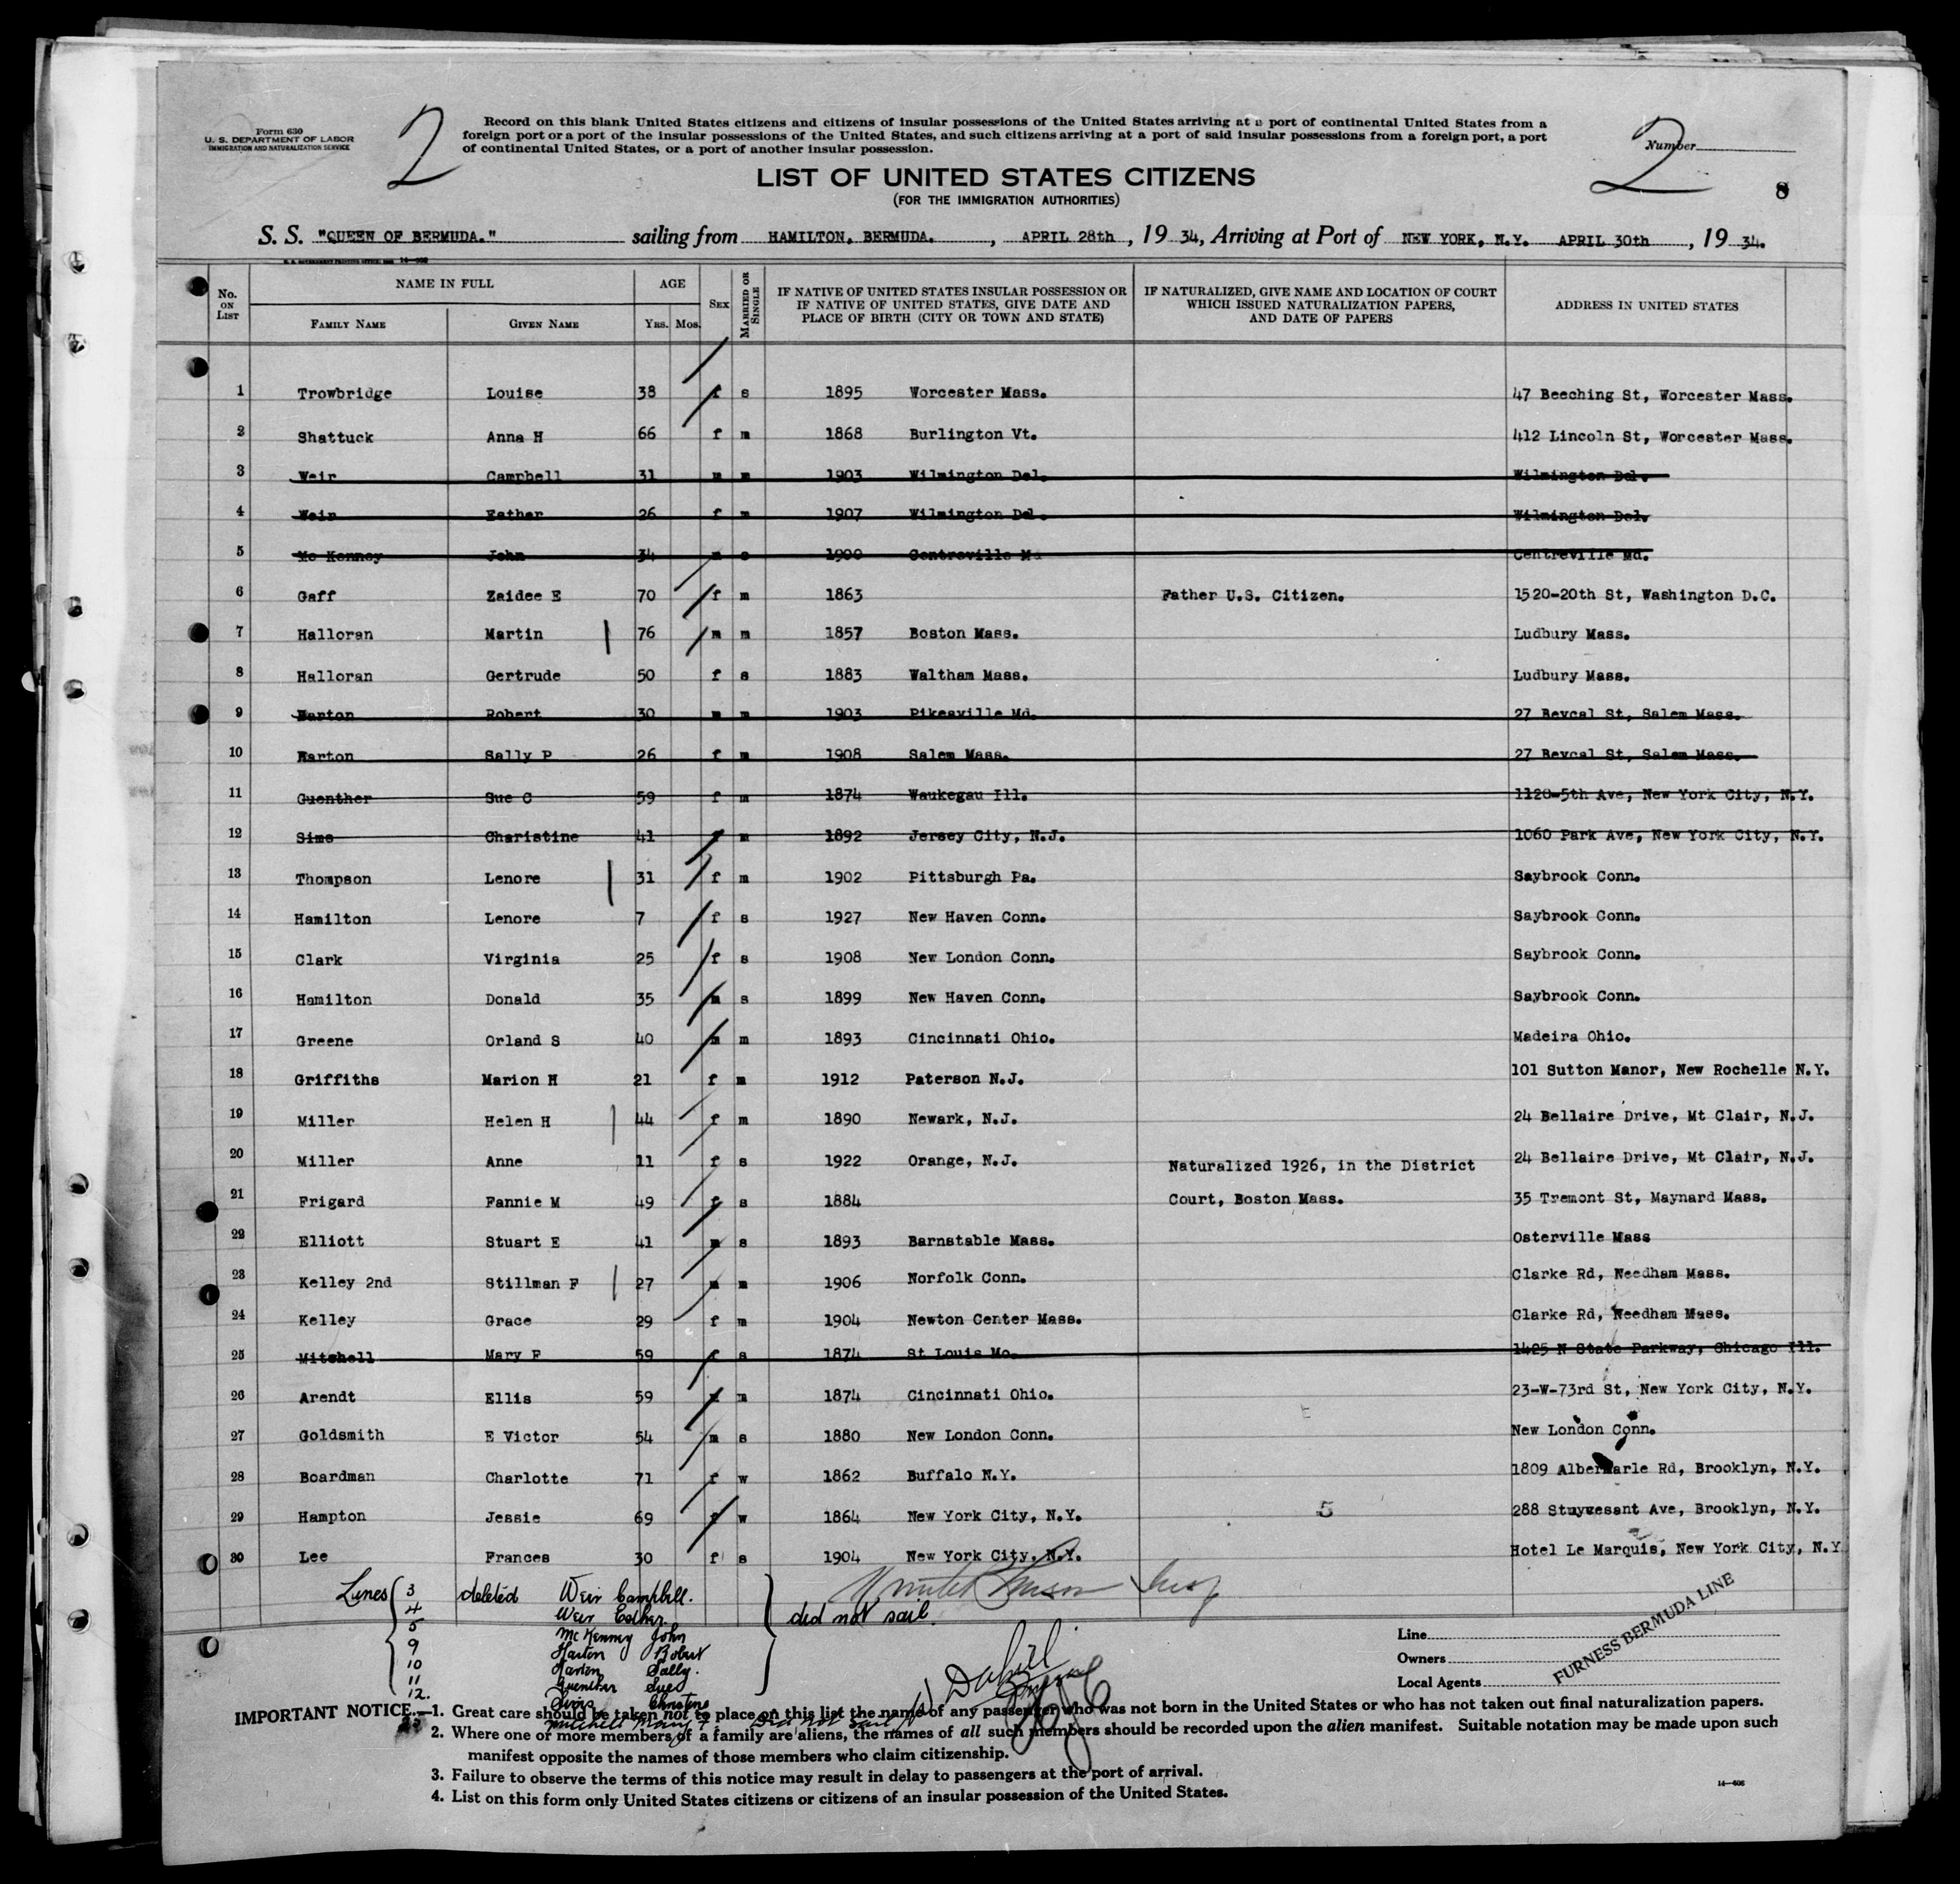 Form 630
U. S. DEPARTMENT OF LABOR
IMMIGRATION AND NATURALIZATION SERVICE
2
Record on this blank United States citizens and citizens of insular possessions of the United States arriving at a port of continental United States from a
foreign port or a port of the insular possessions of the United States, and such citizens arriving at a port of said insular possessions from a foreign port, a port
of continental United States, or a port of another insular possession.
Number 2
8
LIST OF UNITED STATES CITIZENS
(FOR THE IMMIGRATION AUTHORITIES)
S. S. "QUEEN OF BERMUDA." sailing from HAMILTON, BERMUDA. , APRIL 28th , 19 34, Arriving at Port of NEW YORK, N.Y. APRIL 30th , 19 34.
No. ON LIST NAME IN FULL FAMILY NAME GIVEN NAME AGE YRS. MOS. SEX MARRIED OR SINGLE IF NATIVE OF UNITED STATES INSULAR POSSESSION OR IF NATIVE OF UNITED STATES, GIVE DATE AND PLACE OF BIRTH (CITY OR TOWN AND STATE) IF NATURALIZED, GIVE NAME AND LOCATION OF COURT WHICH ISSUED NATURALIZATION PAPERS, AND DATE OF PAPERS ADDRESS IN UNITED STATES
1 Trowbridge Louise 38 f s 1895 Worcester Mass. 47 Beeching St, Worcester Mass.
2 Shattuck Anna H 66 f m 1868 Burlington Vt. 412 Lincoln St, Worcester Mass.
3 Weir Campbell 31 m m 1903 Wilmington Del. Wilmington Del.
4 Weir Esther 26 f m 1907 Wilmington Del. Wilmington Del.
5 Mc Kenney John 34 m s 1900 Centreville Md Centreville Md.
6 Gaff Zaidee E 70 f m 1863 Father U.S. Citizen. 1520-20th St, Washington D.C.
7 Halloran Martin 76 m m 1857 Boston Mass. Ludbury Mass.
8 Halloran Gertrude 50 f s 1883 Waltham Mass. Ludbury Mass.
9 Harton Robert 30 m m 1903 Pikesville Md. 27 Beycal St, Salem Mass.
10 Harton Sally P 26 f m 1908 Salem Mass. 27 Beycal St, Salem Mass.
11 Guenther Sue C 59 f m 1874 Waukegau Ill. 1120-5th Ave, New York City, N.Y.
12 Sims Charistine 41 f m 1892 Jersey City, N.J. 1060 Park Ave, New York City, N.Y.
13 Thompson Lenore 31 f m 1902 Pittsburgh Pa. Saybrook Conn.
14 Hamilton Lenore 7 f s 1927 New Haven Conn. Saybrook Conn.
15 Clark Virginia 25 f s 1908 New London Conn. Saybrook Conn.
16 Hamilton Donald 35 m s 1899 New Haven Conn. Saybrook Conn.
17 Greene Orland S 40 m m 1893 Cincinnati Ohio. Madeira Ohio.
18 Griffiths Marion H 21 f m 1912 Paterson N.J. 101 Sutton Manor, New Rochelle N.Y.
19 Miller Helen H 44 f m 1890 Newark, N.J. 24 Bellaire Drive, Mt Clair, N.J.
20 Miller Anne 11 f s 1922 Orange, N.J. 24 Bellaire Drive, Mt Clair, N.J.
Naturalized 1926, in the District
21 Frigard Fannie M 49 f s 1884 Court, Boston Mass. 35 Tremont St, Maynard Mass.
22 Elliott Stuart E 41 m s 1893 Barnstable Mass. Osterville Mass
23 Kelley 2nd Stillman F 27 m m 1906 Norfolk Conn. Clarke Rd, Needham Mass.
24 Kelley Grace 29 f m 1904 Newton Center Mass. Clarke Rd, Needham Mass.
25 Mitchell Mary F 59 f s 1874 St Louis Mo. 1425 N State Parkway, Chicago Ill.
26 Arendt Ellis 59 m 1874 Cincinnati Ohio. 23-W-73rd St, New York City, N.Y.
27 Goldsmith E Victor 54 m s 1880 New London Conn. New London Conn.
28 Boardman Charlotte 71 f w 1862 Buffalo N.Y. 1809 Albermarle Rd, Brooklyn, N.Y.
29 Hampton Jessie 69 f w 1864 New York City, N.Y. 5 288 Stuyvesant Ave, Brooklyn, N.Y.
30 Lee Frances 30 f s 1904 New York City, N.Y. Hotel Le Marquis, New York City, N.Y
Lines 3 deleted Weir Campbell.
4 Weir Esther. did not sail.
5 McKenney John
9 Harton Robert
10 Harton Sally.
11 Guenther Sue
12. Sims Christine
25 Mitchell Mary F Did not sail
Line
Owners
Local Agents
FURNESS BERMUDA LINE
IMPORTANT NOTICE.—1. Great care should be taken not to place on this list the name of any passenger who was not born in the United States or who has not taken out final naturalization papers.
2. Where one or more members of a family are aliens, the names of all such members should be recorded upon the alien manifest. Suitable notation may be made upon such
manifest opposite the names of those members who claim citizenship.
3. Failure to observe the terms of this notice may result in delay to passengers at the port of arrival.
4. List on this form only United States citizens or citizens of an insular possession of the United States.
14—606